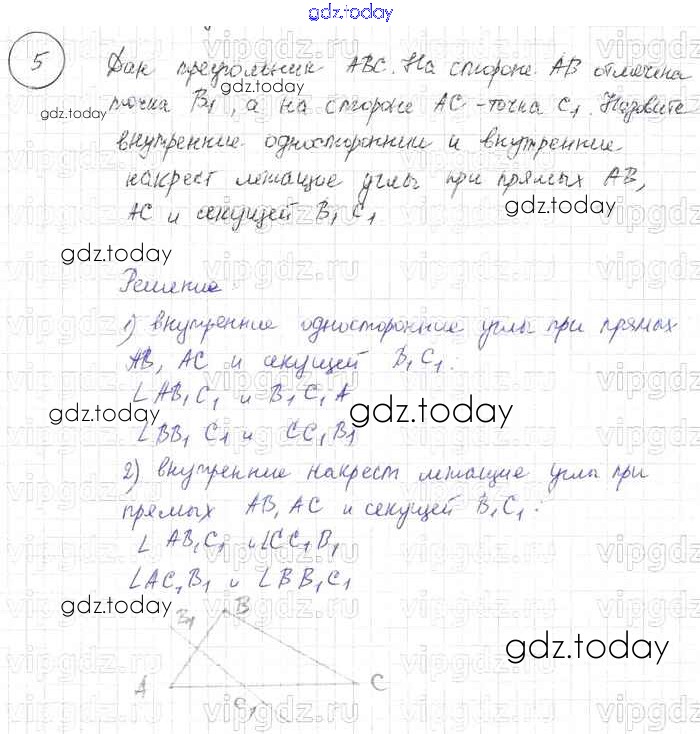 gdz.today
5 Дан треугольник ABC. На стороне AB отмечена
точка B1, а на стороне AC - точка C1. Назовите
внутренние односторонние и внутренние
накрест лежащие углы при прямых AB,
AC и секущей B1 C1
gdz.today
Решение
1) внутренние односторонние углы при прямых
AB, AC и секущей B1C1.
∠AB1C1 и B1C1A
∠BB1C1 и CC1B1
gdz.today
2) внутренние накрест лежащие углы при
прямых AB, AC и секущей B1C1:
∠AB1C1 и ∠CC1B1
∠AC1B1 и ∠BB1C1
gdz.today
B1 B
A C
C1
gdz.today
vipgdz.ru